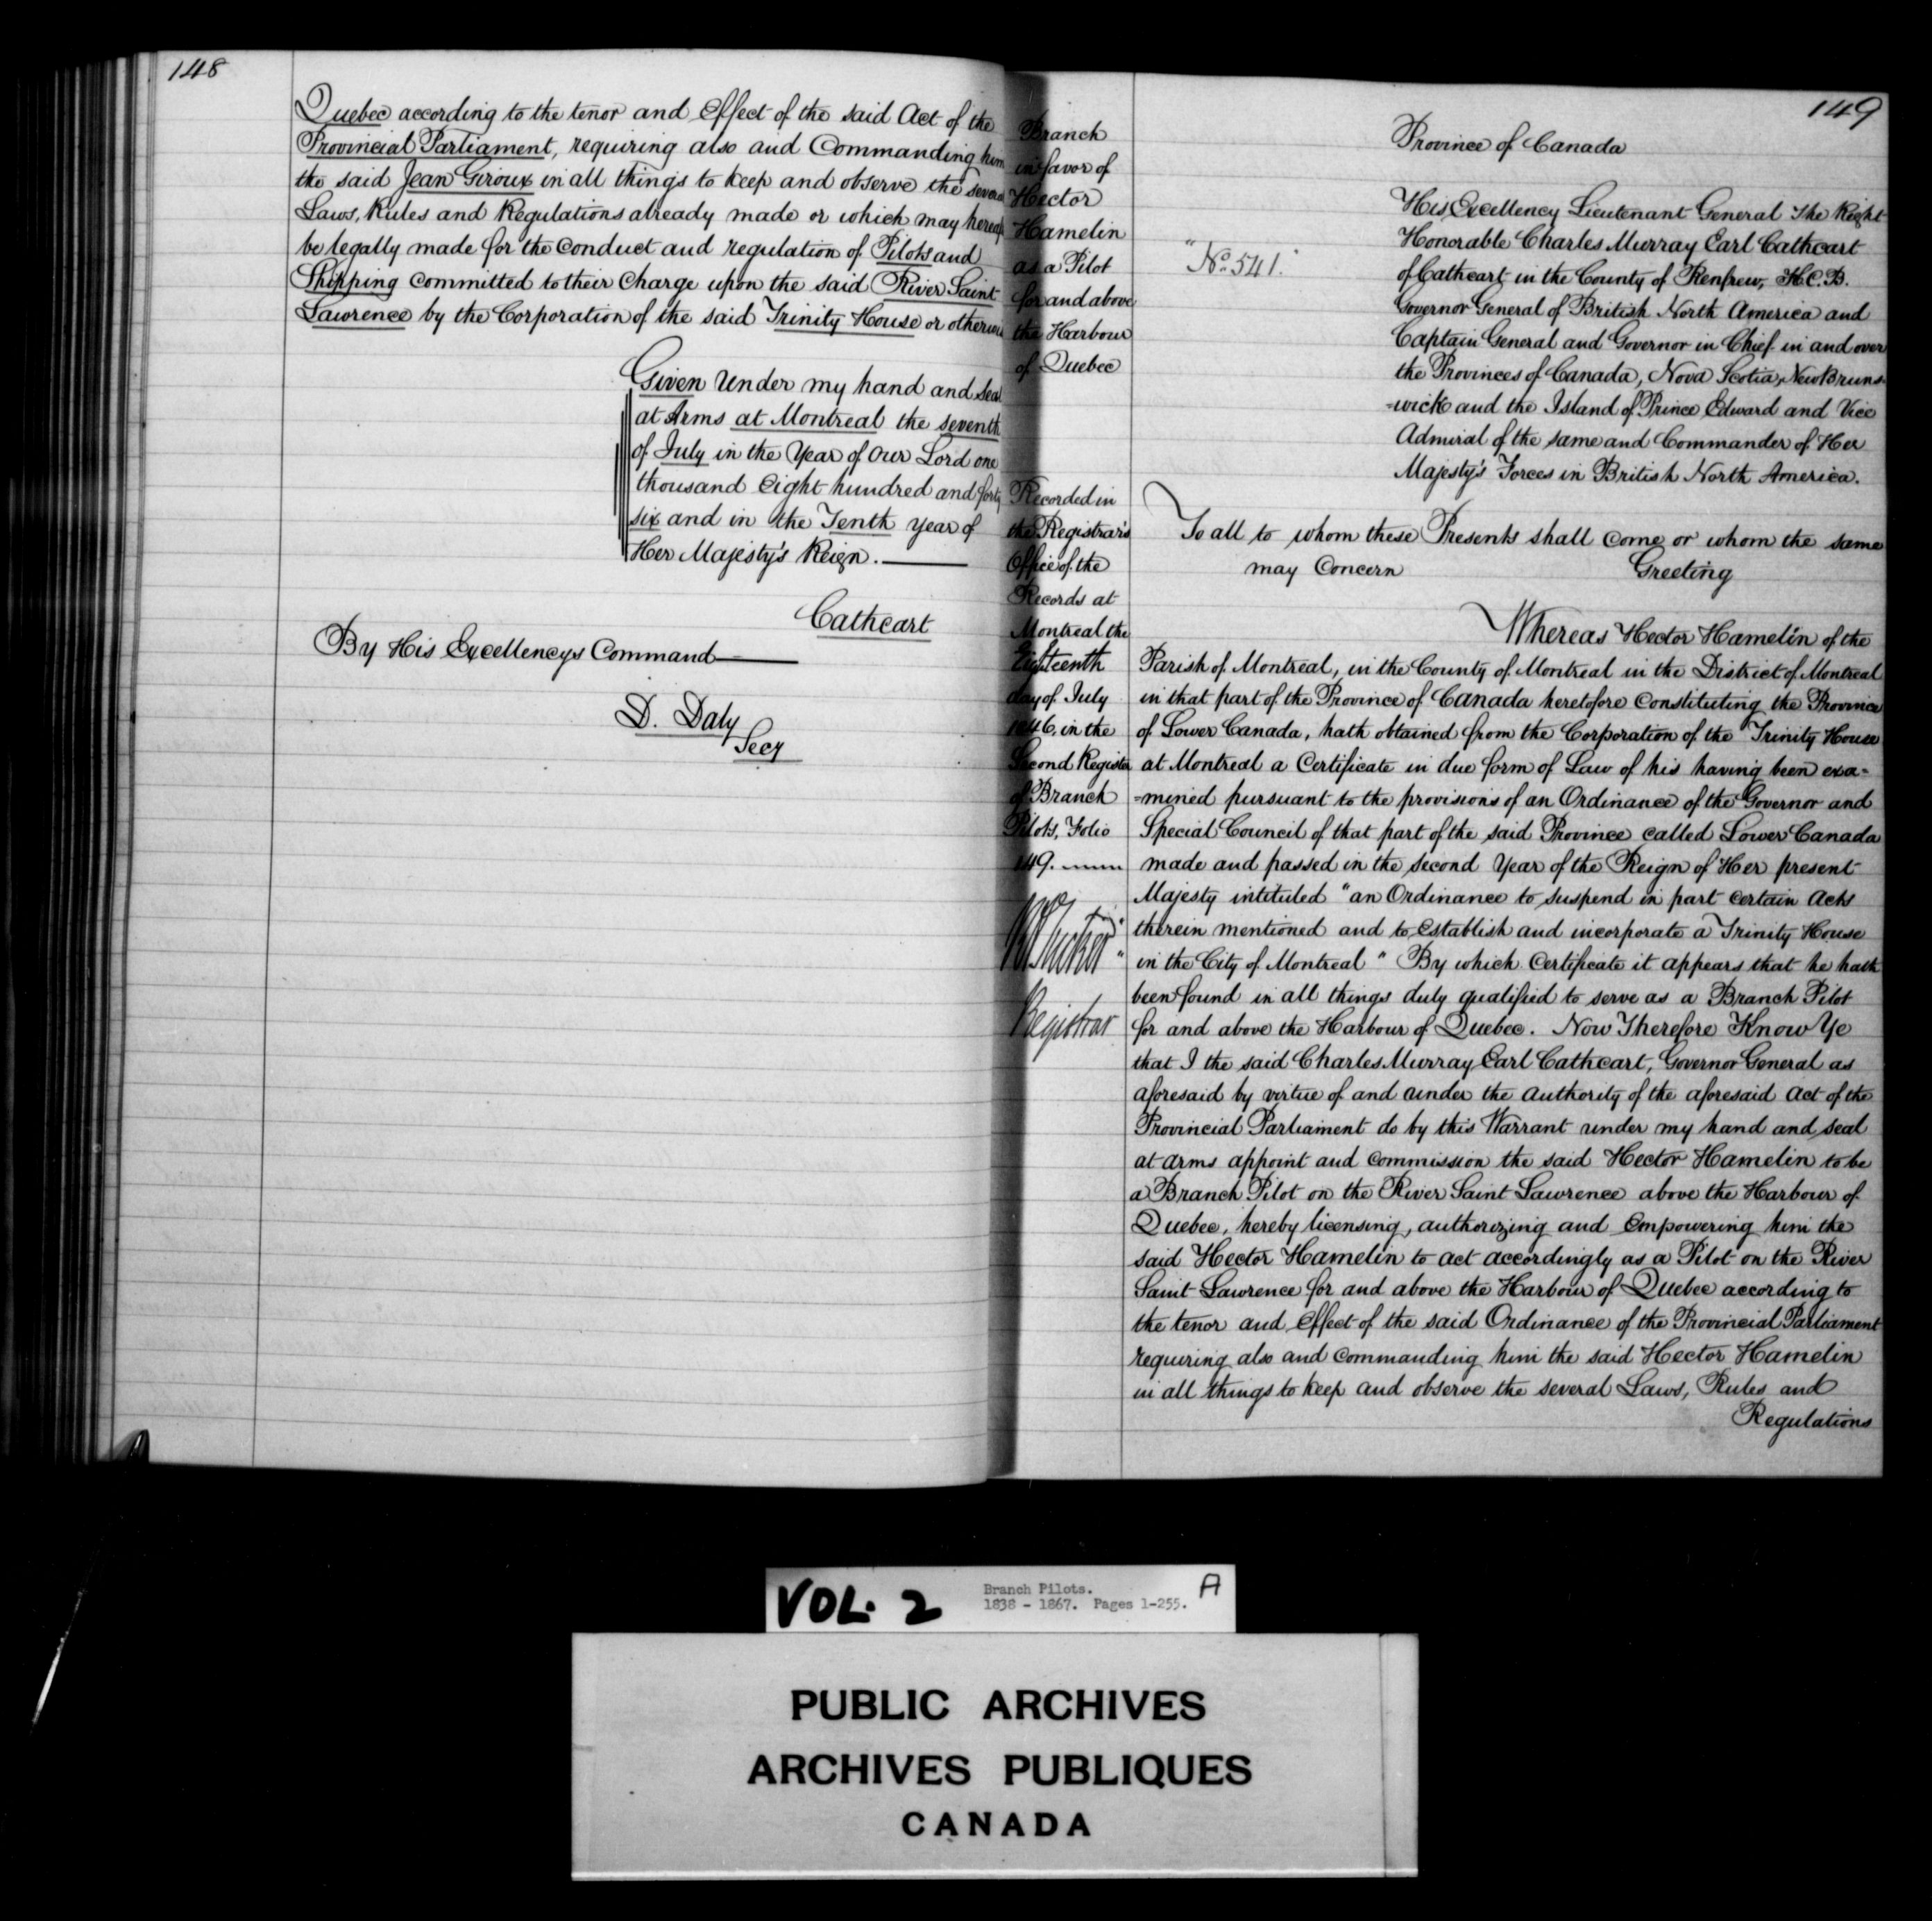 148
Quebec according to the tenor and Effect of the said Act of the
Provincial Parliament, requiring also and Commanding him
the said Jean Giroux in all things to keep and observe the several
Laws, Rules and Regulations already made or which may hereaf
be legally made for the Conduct and regulation of Pilots and
Shipping Committed to their Charge upon the said River Saint
Lawrence by the Corporation of the said Trinity House or otherwise
Given Under my hand and Seal
at Arms at Montreal the seventh
of July in the Year of Our Lord one
thousand Eight hundred and forty
six and in the Tenth year of
Her Majesty's Reign.
Cathcart
By His Excellencys Command
D. Daly
Secy
149
Branch
in favor of
Hector
Hamelin
as a Pilot
for and above
the Harbour
of Quebec
Recorded in
the Registrar's
Office of the
Records at
Montreal the
day of July
1846, in the
Second Register
of Branch
Pilots, Folio
149.
Registrar
"No. 541."
Province of Canada
His Excellency Lieutenant General The Right
Honorable Charles Murray Earl Cathcart
of Cathcart in the County of Renfrew, K.C.B.
Governor General of British North America and
Captain General and Governor in Chief in and over
the Provinces of Canada, Nova Scotia, New Bruns-
=wick and the Island of Prince Edward and Vice
Admiral of the same and Commander of Her
Majesty's Forces in British North America.
To all to whom these Presents shall come or whom the same
may Concern Greeting
Whereas Hector Hamelin of the
Parish of Montreal, in the County of Montreal in the District of Montreal
in that part of the Province of Canada heretofore Constituting the Province
of Lower Canada, hath obtained from the Corporation of the Trinity House
at Montreal a Certificate in due form of Law of his having been exa=
=mined pursuant to the provisions of an Ordinance of the Governor and
Special Council of that part of the said Province called Lower Canada
made and passed in the second Year of the Reign of Her present
Majesty intituled "an Ordinance to suspend in part Certain Acts
therein mentioned and to Establish and incorporate a Trinity House
in the City of Montreal" By which Certificate it appears that he hath
been found in all things duly qualified to serve as a Branch Pilot
for and above the Harbour of Quebec. Now Therefore Know Ye
that I the said Charles Murray Earl Cathcart, Governor General as
aforesaid by virtue of and under the authority of the aforesaid Act of the
Provincial Parliament do by this Warrant under my hand and seal
at arms appoint and commission the said Hector Hamelin to be
a Branch Pilot on the River Saint Lawrence above the Harbour of
Quebec, hereby licensing, authorizing and Empowering him the
said Hector Hamelin to act accordingly as a Pilot on the River
Saint Lawrence for and above the Harbour of Quebec according to
the tenor and Effect of the said Ordinance of the Provincial Parliament
requiring also and commanding him the said Hector Hamelin
in all things to keep and observe the several Laws, Rules and
Regulations
VOL. 2
Branch Pilots.
1838 - 1867. Pages 1-255.
A
PUBLIC ARCHIVES
ARCHIVES PUBLIQUES
CANADA